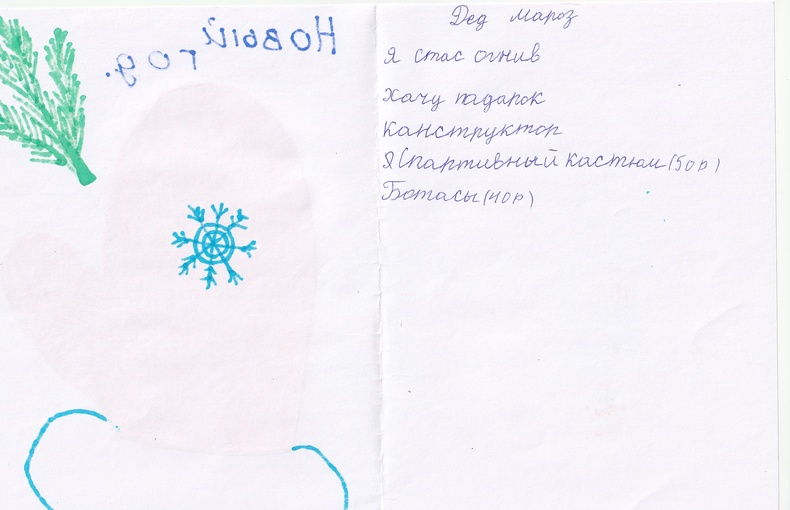 Новый
год.
Дед Мароз
Я стас огнив
Хачу падарок
Канструктор
Я Спартивный кастюм (50р)
Ботасы (40р)